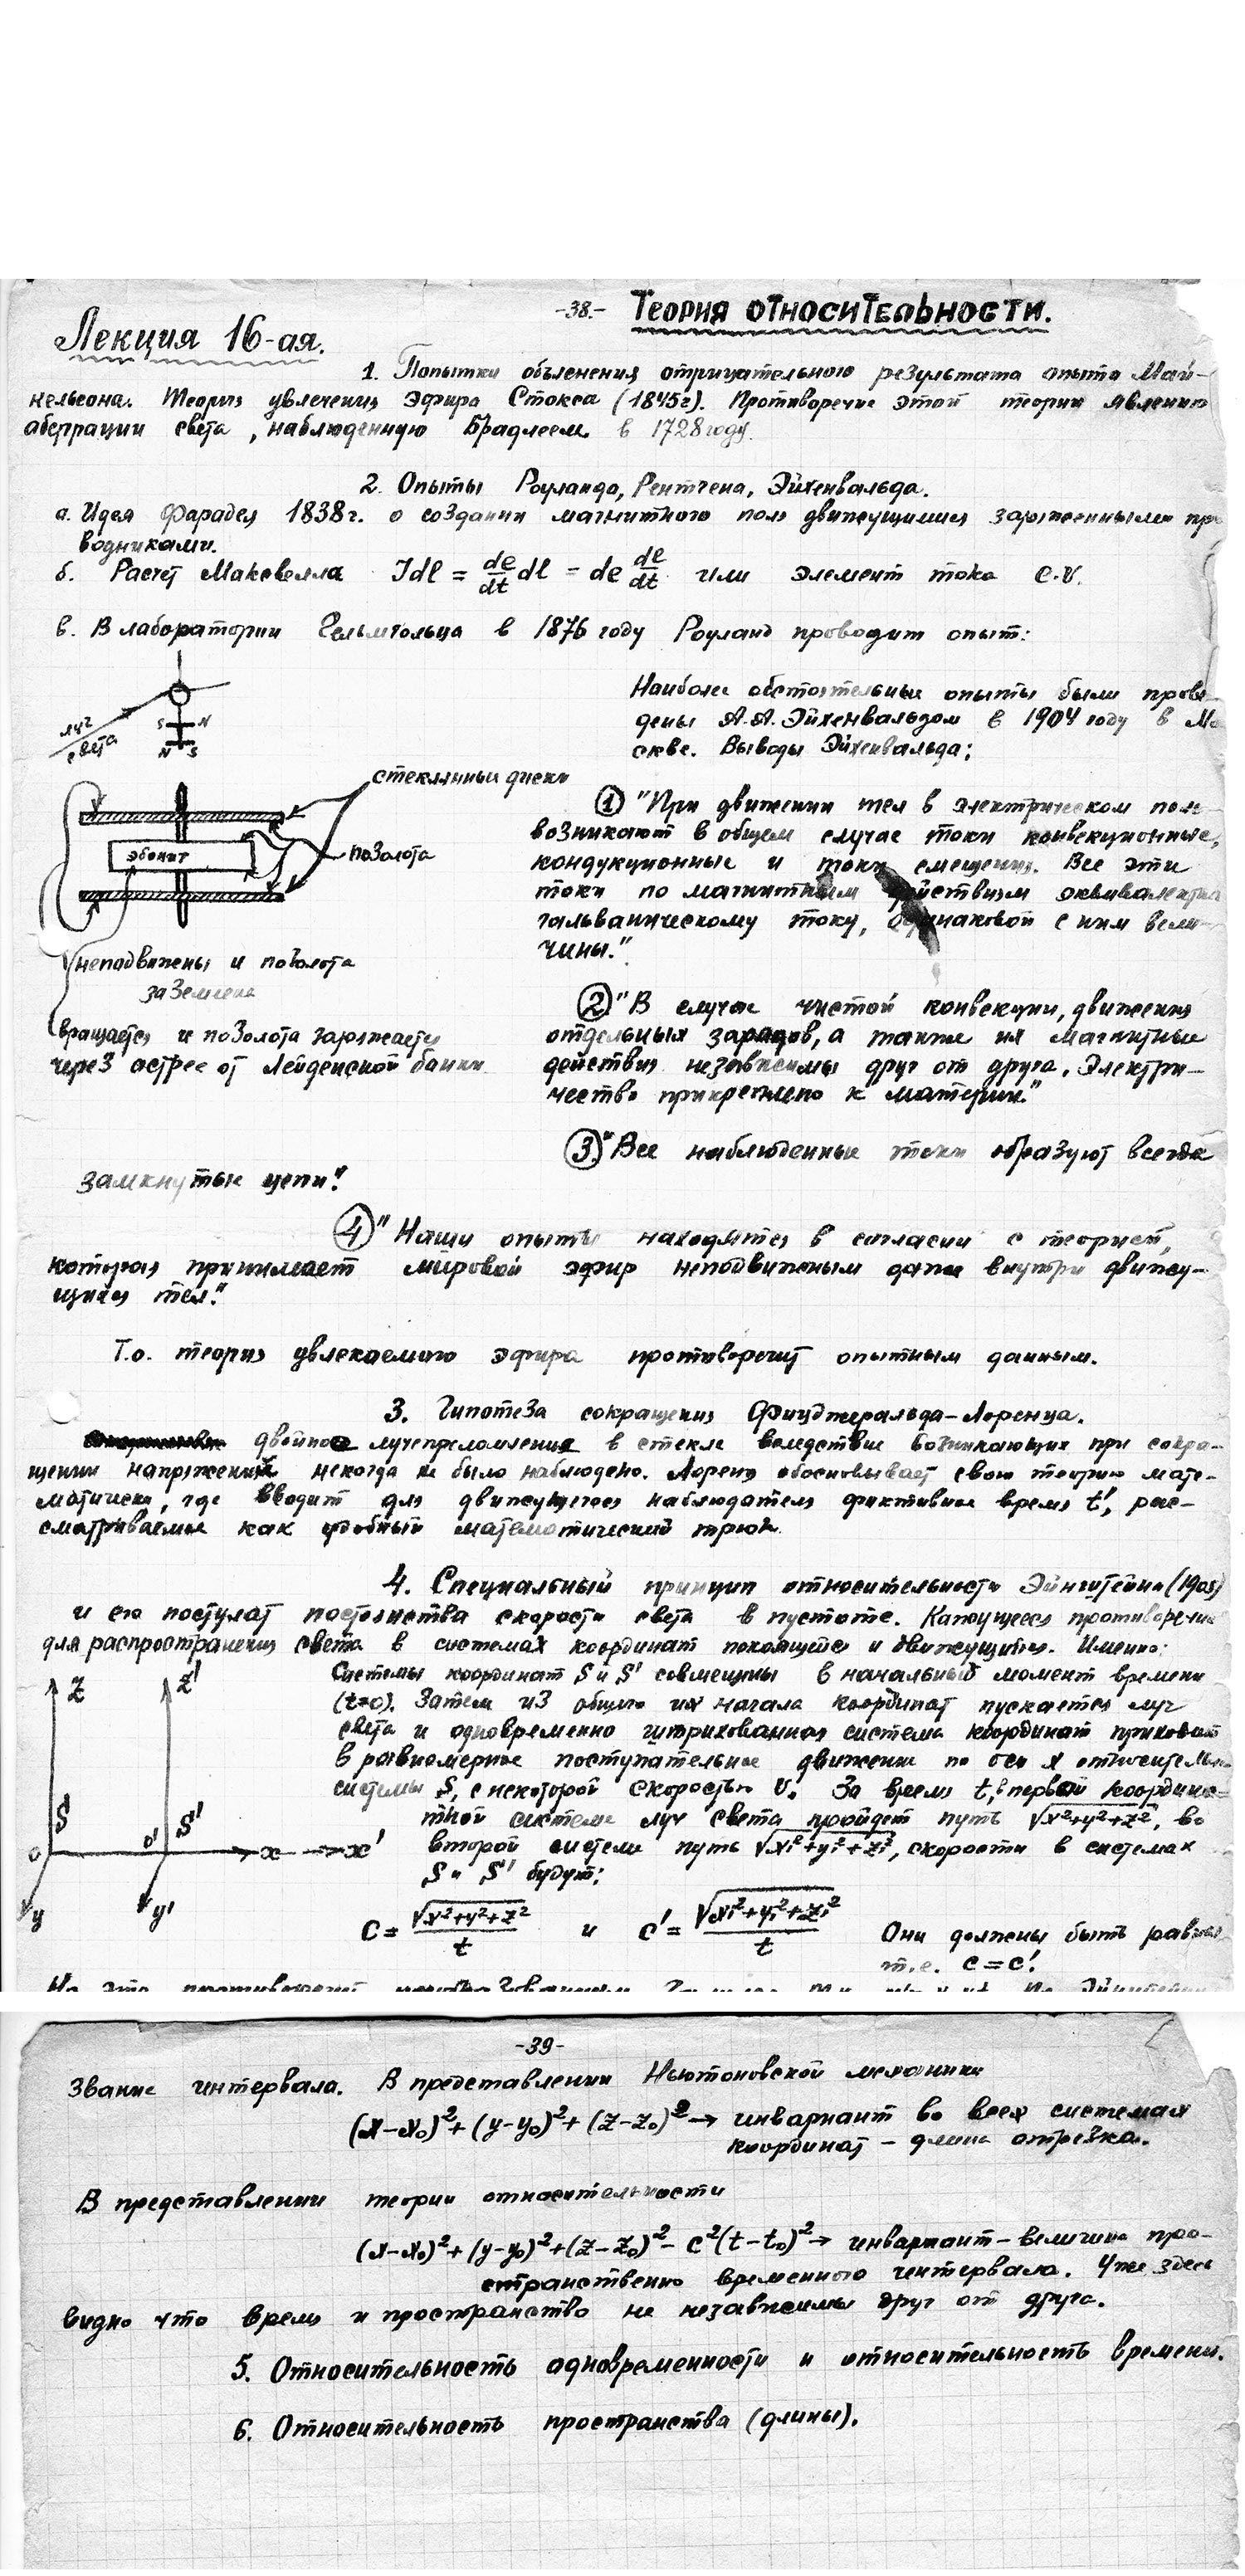 -38.- Теория относительности.
Лекция 16-ая.
1. Попытки объяснения отрицательного результата опыта Май-
кельсона. Теория увлечения эфира Стокса (1845г). Противоречие этой теории явлению
аберрации света, наблюденную Брадлеем в 1728 году.
2. Опыты Роуланда, Рентгена, Эйхенвальда.
а. Идея Фарадея 1838г. о создании магнитного поля движущимися заряженными про
водниками.
б. Расчет Максвелла Idl = de/dt dl = de dl/dt или элемент тока e.v.
в. В лаборатории Гельмгольца в 1876 году Роуланд проводит опыт:
луч света
S N
N S
Наиболее обстоятельные опыты были прове-
дены А.А. Эйхенвальдом в 1904 году в Мо
скве. Выводы Эйхенвальда:
стеклянные диски
эбонит
позолота
① "При движении тел в электрическом поле
возникают в общем случае токи конвекционные,
кондукционные и токи смещения. Все эти
токи по магнитным действиям эквивалентны
гальваническому току, одинаковой с ним вели-
чины."
неподвижены и позолота
заземлена
вращается и позолота заряжается
через острие от Лейденской банки
② "В случае чистой конвекции, движения
отдельных зарядов, а также их магнитные
действия независимы друг от друга. Электри-
чество прикреплено к материи."
③ "Все наблюденные токи образуют всегда
замкнутые цепи".
④ "Наши опыты находятся в согласии с теорией,
которая принимает мировой эфир неподвижным даже внутри движу-
щихся тел".
Т.о. теория увлекаемого эфира противоречит опытным данным.
3. Гипотеза сокращения Фицджеральда-Лоренца.
двойное лучепреломление в стекле вследствие возникающих при сокра-
щении напряжений некогда не было наблюдено. Лоренц обосновывает свою теорию мате-
матически, где вводит для движущегося наблюдателя фиктивное время t', рас-
сматриваемые как удобный математический трюк.
4. Специальный принцип относительности Эйнштейна (1905)
и его постулат постоянства скорости света в пустоте. Кажущееся противоречие
для распространения света в системах координат покоящейся и движущийся. Именно:
Системы координат S и S' совмещины в начальный момент времени
(t=0). Затем из общего их начала координат пускается луч
света и одновременно штрихованная система координат приходит
в равномерное поступательное движение по оси x относительно
системы S, с некоторой скоростью v. За время t, в первой координа-
тной системе луч света пройдет путь √x²+y²+z², во
второй системе путь √x₁²+y₁²+z₁², скорости в системах
S и S' будут:
z z' S S' o o' x x' y y'
c = √x²+y²+z² / t и c' = √x₁²+y₁²+z₁² / t Они должены быть равны
т.е. c = c'.
-39-
звание интервала. В представлении Ньютоновской механики
(x-x₀)²+(y-y₀)²+(z-z₀)² → инвариант во всех системах
координат - длина отрезка.
В представлении теории относительности
(x-x₀)²+(y-y₀)²+(z-z₀)²- c²(t-t₀)² → инвариант-величина про-
странственно временного интервала. Уже здесь
видно что время и пространство не независимы друг от друга.
5. Относительность одновременности и относительность времени.
6. Относительность пространства (длины).